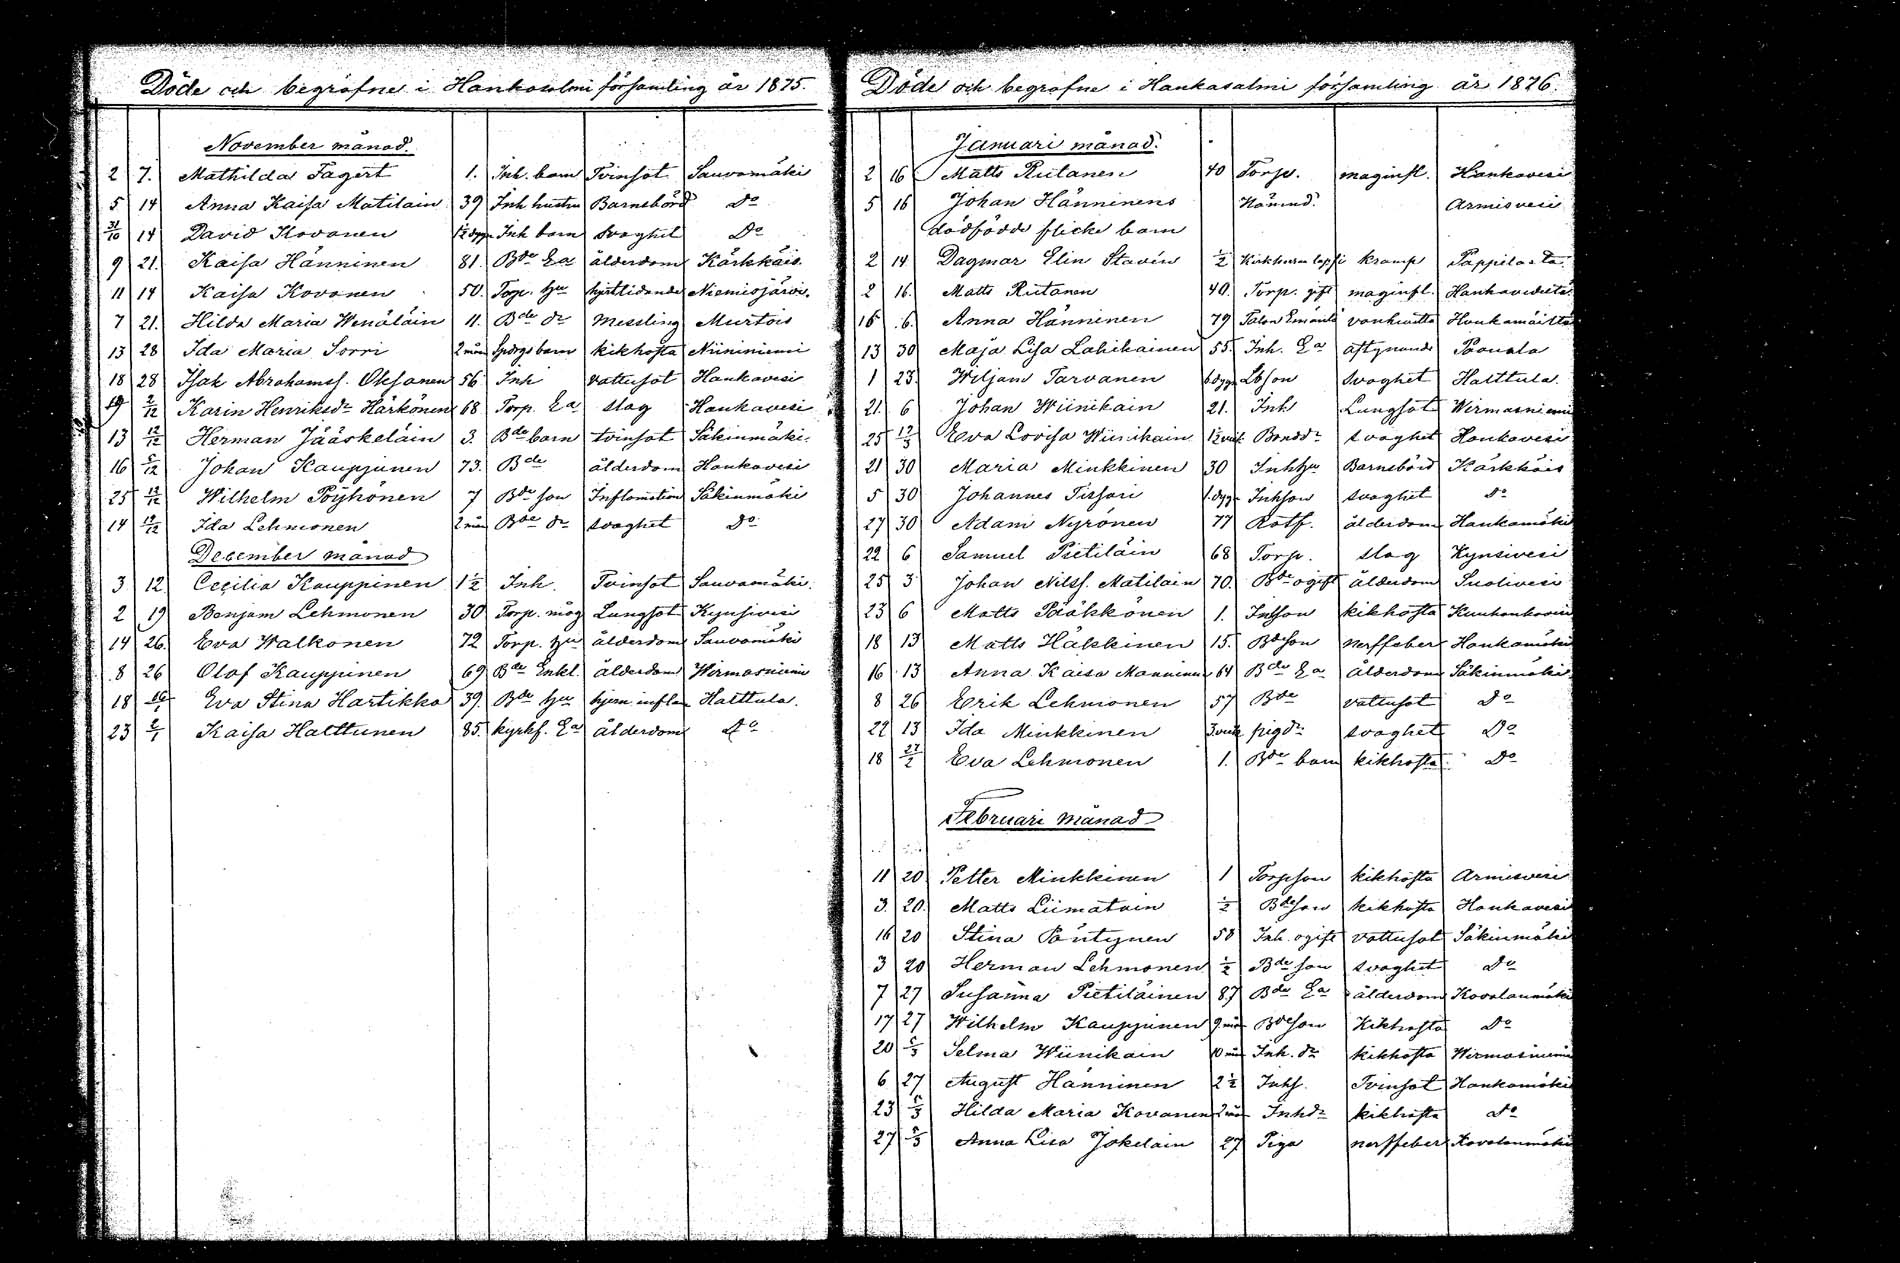 Döde och begrafne i Hankasalmi församling år 1875.
November månad.
2 7. Mathilda Fagert 1. Inh. barn Tvinsot Sauvomäki
5 14 Anna Kaisa Matilain 39 Inh hustru Barnsbörd Do
31/10 14 David Kovanen 1½ dygn Inh barn svaghet Do
9 21. Kaisa Hänninen 81. Bde Ea ålderdom Kärkkäis.
11 14 Kaisa Kovanen 50. Torp. hu Niemisjärvi.
7 21. Hilda Maria Wenäläin 11. Bde dr Messling Murtois
13 28 Ida Maria Sorri 2 mån barn kikhosta Niininiemi
18 28 Isak Abrahamss. Oksanen 56 Inh vattusot Hankavesi
19 2/12 Karin Henriksdr Härkönen 68 Torp. Ea slag Hankavesi
13 12/12 Herman Jääskeläin 3. Bde barn tvinsot Säkinmäki
16 5/12 Johan Kauppinen 73. Bde ålderdom Hankavesi
25 12/12 Wilhelm Pöyhönen 7 Bde son Inflamation Säkinmäki
14 12/12 Ida Lehmonen 2 mån Bde dr svaghet Do
December månad
3 12. Cecilia Kauppinen 1½ Inh. Tvinsot Sauvamäki.
2 19 Benjam Lehmonen 30 Torp. måg Lungsot Kynsivesi
14 26. Eva Walkonen 72 Torp. hu ålderdom Sauvomäki
8 26 Olof Kauppinen 69 Bde Enkl. ålderdom Wirmasniemi
18 Eva Stina Hartikka 39. Bde hu hjern inflam Halttula.
23 2/1 Kaisa Halttunen 85. kyrkf. Ea ålderdom Do
Döde och begrafne i Hankasalmi församling år 1876.
Januari månad.
2 16 Matts Riitanen 40 Torp. maginfl. Hankavesi
5 16 Johan Hänninens Armisvesi
dödfödde flicke barn
2 14 Dagmar Elin Stavén ½ lapsi kramp Pappilasta
2 16. Matts Riitanen 40. Torp. gift maginfl. Hankavedeltä
16 6. Anna Hänninen 79 Talon Emäntä vanhuutta Hankamäiltä
13 30 Maja Lisa Lahikainen 55. Inh. Ea aftynande Paunala
1 23. Wiljam Tarvanen 6 dygn Lösson Svaghet Halttula.
21. 6 Johan Wiinikain 21. Inh Lungsot Wirmasniemi
25 12/3 Eva Lovisa Wiinikain svaghet Hankavesi
21 30 Maria Minkkinen 30 Inhhu Barnsbörd Kärkkäis
5 30 Johannes Tissari 1. dygn Inhson svaghet do
27 30 Adam Nyrönen 77 Rotf. ålderdom Hankamäki
22 6 Samuel Pietiläin 68 Torp. slag Kynsivesi
25 3 Johan Nilss. Matilain 70. Bde ogift ålderdom Suolivesi
23 6 Matts Pääkkönen 1. Inhson kikhosta Kuuhankavesi
18 13 Matts Häkkinen 15. Bdeson nerffeber Hankamäki
16 13 Anna Kaisa Manninen 64 Bde Ea ålderdom Säkinmäki
8 26 Erik Lehmonen 57 Bde vattusot Do
22 13 Ida Minkkinen 3 veck pigdr svaghet Do
18 27/2 Eva Lehmonen 1. Bde barn kikhosta Do
Februari månad
11 20 Petter Minkkinen 1 Torpson kikhosta Armisvesi
3. 20. Matts Liimatain ½ Bdeson kikhosta Hankavesi
16 20 Stina Pöntynen 58 Inh. ogift Vattusot Säkinmäki
3 20 Herman Lehmonen ½ Bde son svaghet Do
7 27 Susanna Pietiläinen 87 Bde Ea ålderdom Kovalanmäki
17 27 Wilhelm Kauppinen 9 mån Bdeson Kikhosta Do
20 5/3 Selma Wiinikain 10 mån Inh. dr kikhosta Wirmasniemi
6 27 August Hänninen 2½ Inhs. Tvinsot Hankamäki
23 5/3 Hilda Maria Kovanen 2 mån Inhdr kikhosta do
27 5/3 Anna Lisa Jokelain 27 Piga nerffeber Kovalanmäki